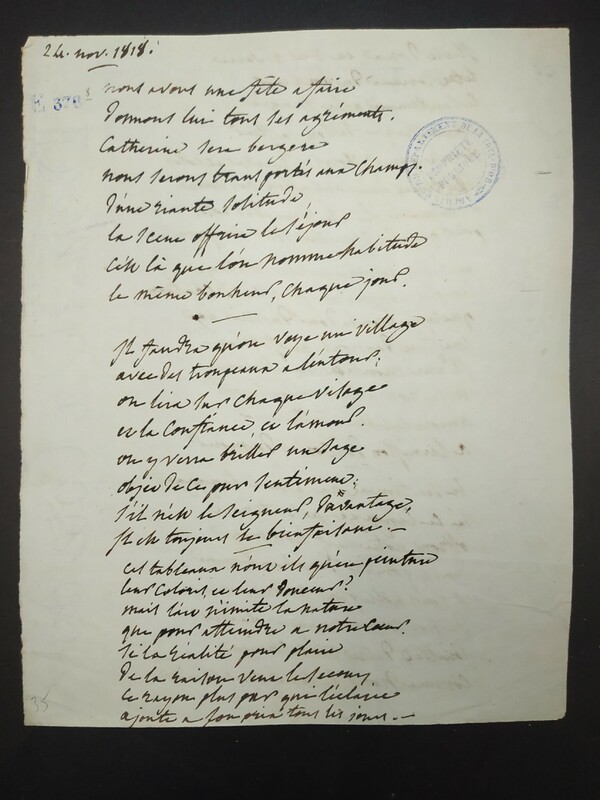 24. nov. 1818.
E 379
nous avons une fete a faire
donnons lui tous ses agréments.
Catherine sera bergere
nous serons transportés aux champs.
d'une riante solitude
la scene offrira le séjour
c'est là que l'on nomme habitude
le même bonheur, chaque jour.
Il faudra qu'on voye un village
avec des troupeaux a l'entour;
on lira sur chaque visage
et la confiance et l'amour.
on y verra briller un sage
objet de ce pur sentiment;
s'il n'est le seigneur, davantage,
il est toujours le bienfaisant. —
ces tableaux n'ont ils qu'en peinture
leur coloris et leur douceur?
mais l'art n'imite la nature
que pour atteindre a notre coeur.
si la réalité pour plaire
de la raison veut le secours
ce rayon plus pur qui l'éclaire
ajoute a son prix tous les jours. —
35